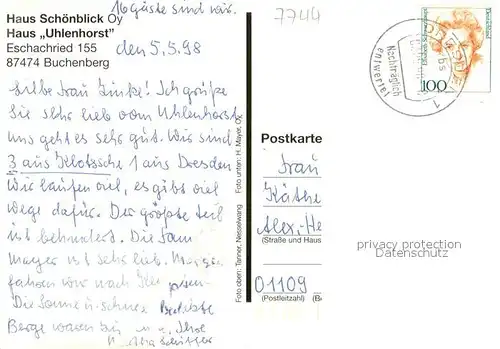 16 Gäste sind wir.
Haus Schönblick Oy
Haus „Uhlenhorst"
Eschachried 155
87474 Buchenberg
den 5.5.98
Liebe Frau Zinke! Ich grüße
Sie sehr lieb vom Uhlenhorst
uns geht es sehr gut. Wir sind
3 aus Klotzsche 1 aus Dresden
Wir laufen viel, es gibt viel
Wege dafür. Der größte Teil
ist behindert. Die Fam
mayer ist sehr lieb. Morgen
fahren wir nach
Die Sonne u. schnee
Berge waren Ihre
Foto oben: Tanner, Nesselwang
Foto unten: H. Mayer, Oy
7744
DRESDEN
bs
1
Nachträglich
entwertet
100
Postkarte
Frau
Käthe
Alex.-He
(Straße und Haus
01109
(Postleitzahl)
(Be
privacy protection
Datenschutz